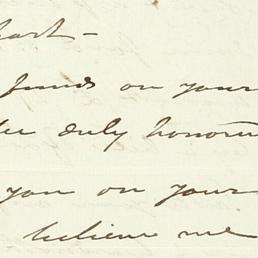 funds on your
duly honor
you on your
believe me